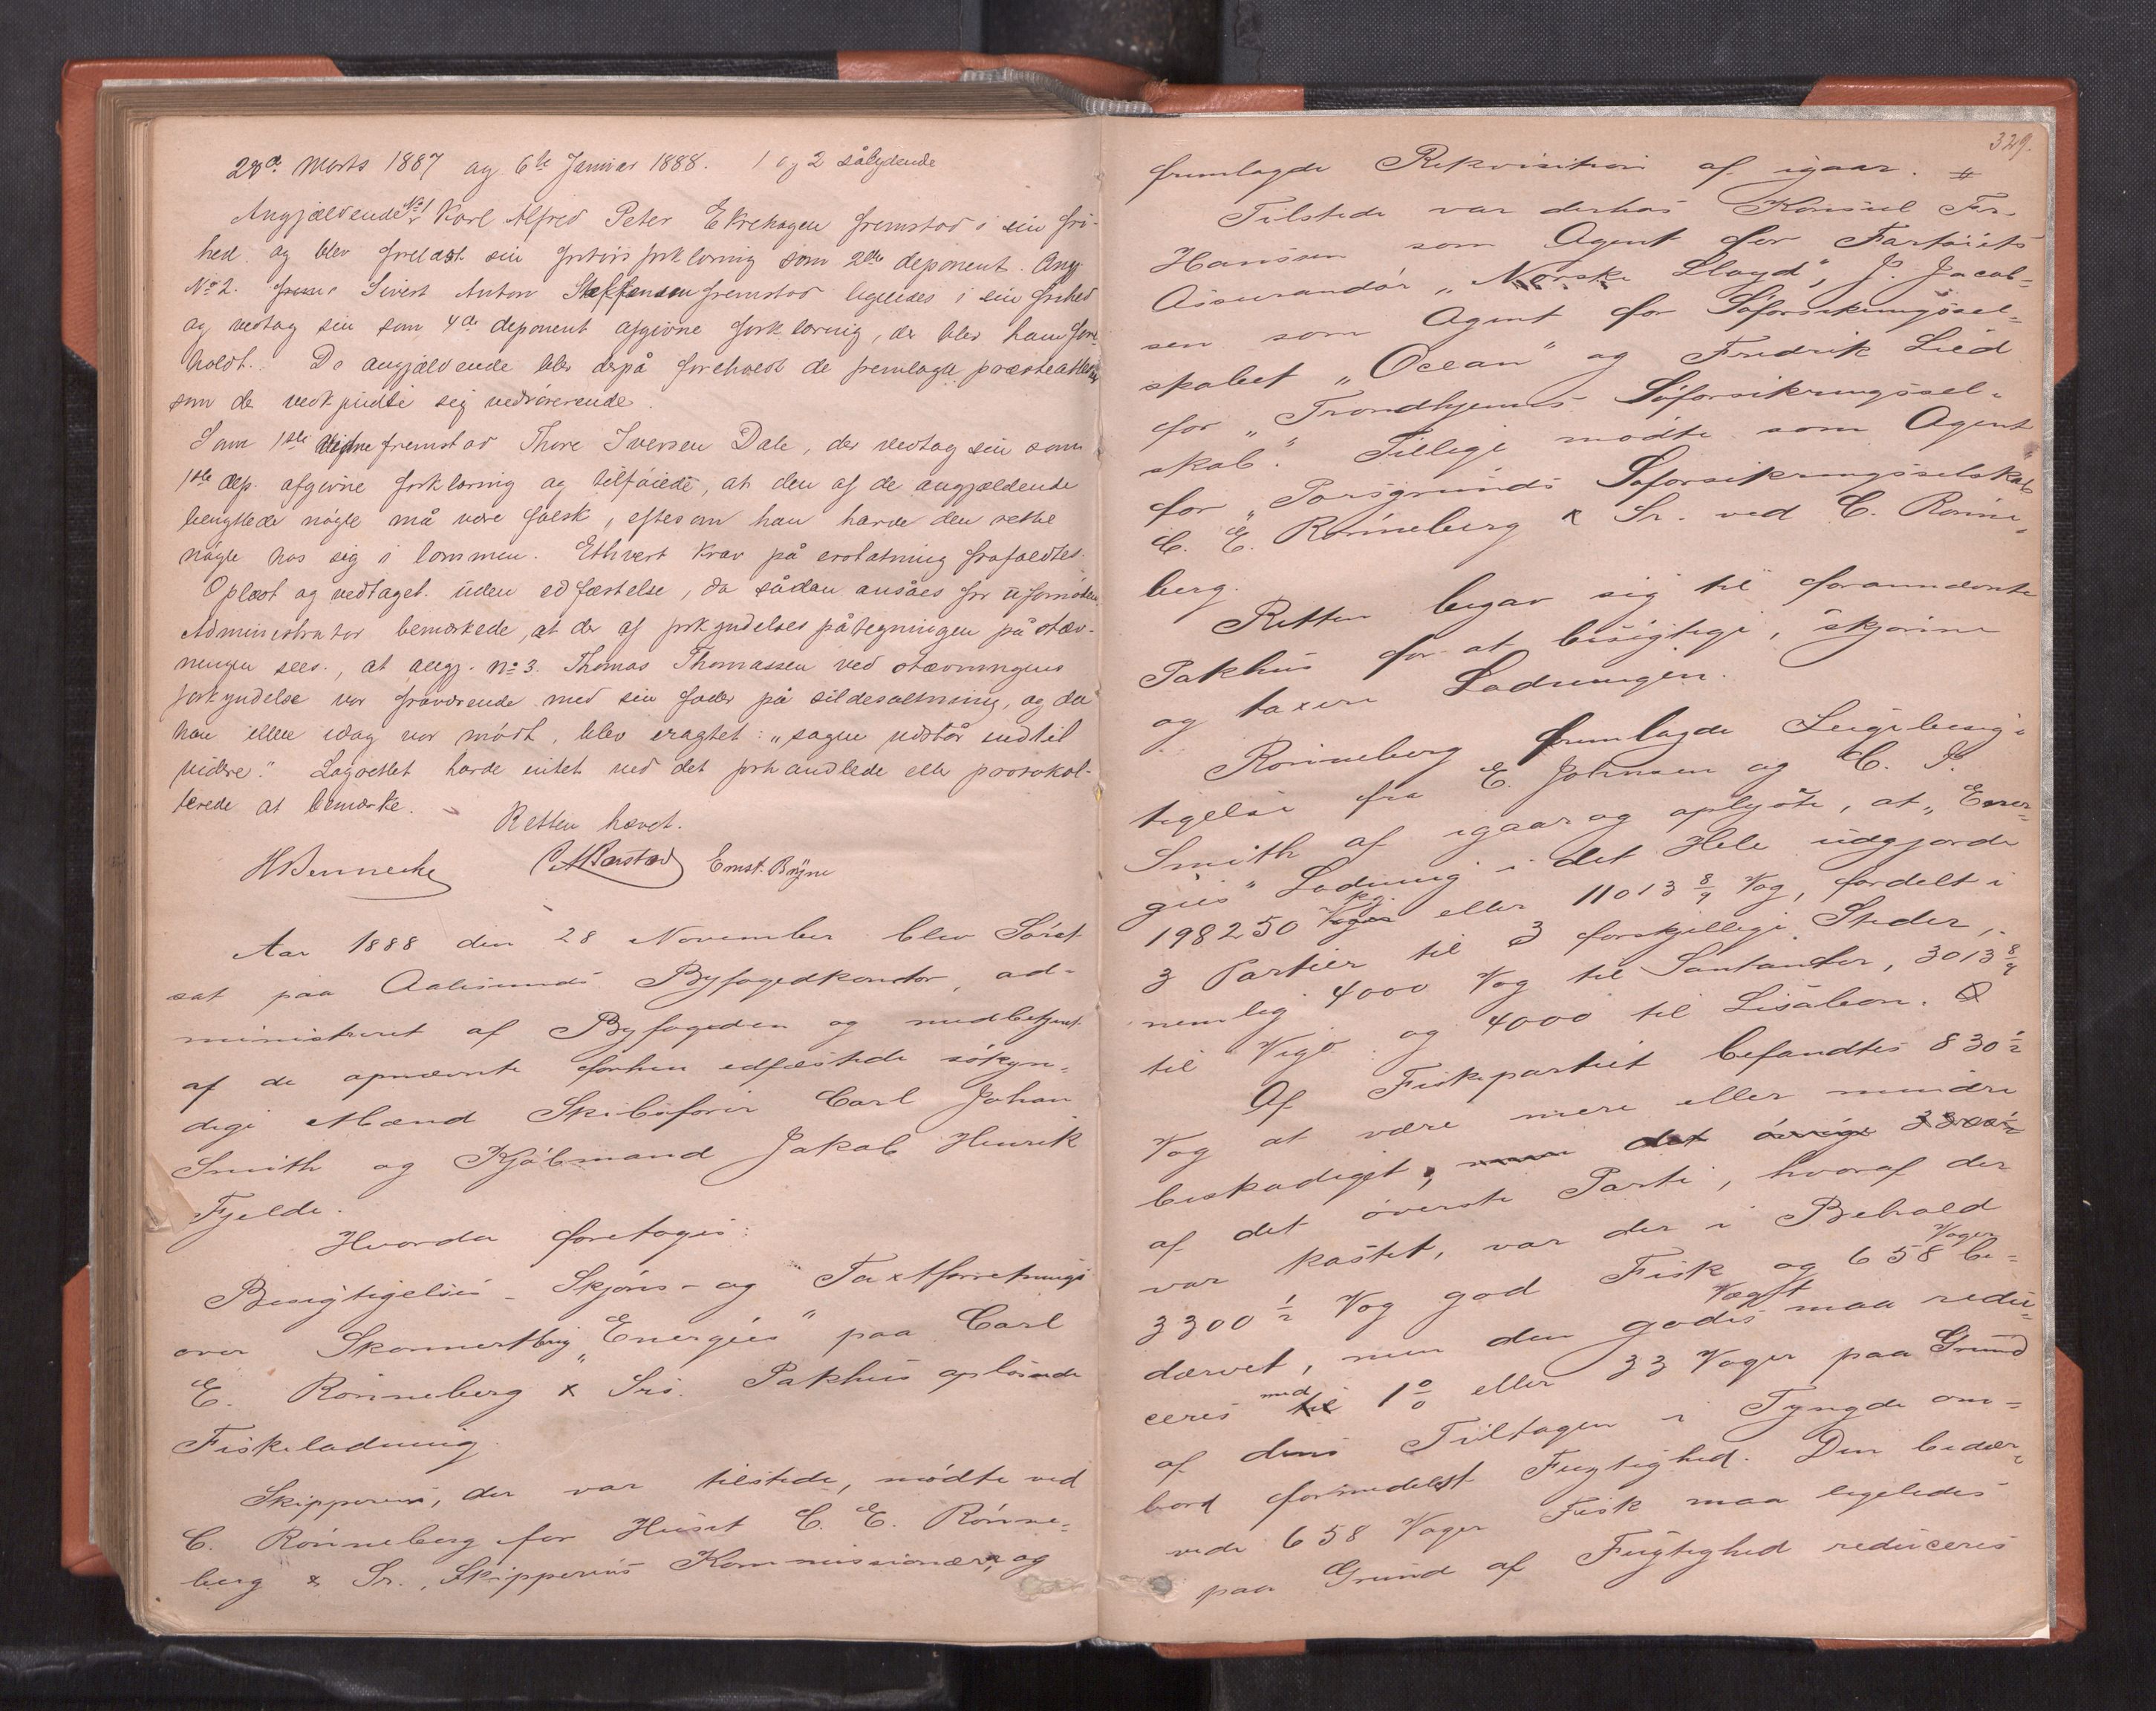 28de Marts 1887 og 6te Januar 1888. 1 og 2 sålydende
Angjældende No 1 Karl Alfred Peter Ekrehagen fremstod i sin fri-
hed og blev forelæst sin forklaring som 2den deponent. Ang
No 2. Sivert Anton Steffensen fremstod ligeledes i sin frihed
og vedtog sin som 4de deponent afgivne forklaring, der blev ham fore
holdt. De angjældende blev derpå foreholdt de fremlagte præsteattester
som de vedkjendte sig vedrørende.
Som 1ste vidne fremstod Thore Iversen Dale, der vedtog sin som
1ste dep. afgivne forklaring og tilføiede, at den af de angjældende
benyttede nøgle må være falsk, eftersom han havde den rette
nøgle hos sig i lommen. Ethvert krav på erstatning frafaldtes.
Oplæst og vedtaget uden edfæstelse, da sådan ansåes for ufornøden.
Administrator bemærkede, at der af forkyndelses påtegningen på stæv-
ningen sees, at angj. No 3. Thomas Thomassen ved stævningens
forkyndelse var fraværende med sin fader på sildesaltning, og da
han eller idag var mødt, blev eragtet: "sagen udstår indtil
videre." Lagrettet havde intet ved det forhandlede eller protokol-
lerede at bemærke.
Retten hævet.
HBennecke Ernst. Bøyne
Aar 1888 den 28 November blev Søret
sat paa Aalesunds Byfogedkontor, ad-
ministreret af Byfogden og medbetjent
af de opnævnte forhen edfæstede søkyn-
dige Mænd Skibsfører Carl Johan
Smith og Kjøbmand Jakob Henrik
Fjelde.
Hvorda foretoges:
Besigtigelses- Skjøns- og Taxtforretnings
over Skonnertbrig "Energies" paa Carl
E. Rønneberg & Sns. Pakhus oplossede
Fiskeladning.
Skipperen, der var tilstede, mødte ved
C. Rønneberg for Huset C. E. Rønne-
berg & Sr., Skipperens Kommissionær, og
329.
fremlagde Rekvisition af igaar. #
Tilstede var derhos Konsul Fr.
Hanssen som Agent for Fartøiets
Assurandør "Norske Lloyd", P. Jacob-
sen som Agent for Søforsikringssel-
skabet "Ocean" og Fredrik Lied
for "Trondhjems Søforsikringssel-
skab". Tillige mødte som Agent
for "Porsgrunds Søforsikringsselskab
C. E. Rønneberg & Sr. ved C. Rønne-
berg.
Retten begav sig til forannævnte
Pakhus for at besigtige, skjønne
og taxere Ladningen.
Rønneberg fremlagde Lugebesig-
tigelse fra E. Johnsen og C. J.
Smith af igaar og oplyste, at "Ener-
gies" Ladning i det Hele udgjorde
198250 kg. eller 11013 8/9 Vog, fordelt i
3 Partier til 3 forskjellige Steder,
nemlig 4000 Vog til Santander, 3013 8/9
til Vigo og 4000 til Lissabon.
Af Fiskepartiet befandtes 830 1/2
Vog at være mere eller mindre
beskadiget, men det øvrige 3300 1/2
af det øverste Parti, hvoraf der
var kastet, var der i Behold
3300 1/2 Vog god Fisk og 658 Voger be-
dærvet, men den godes Vægt maa redu-
ceres med til 1 % eller 33 Voger paa Grund
af dens Tiltagen i Tyngde om-
bord formedelst Fugtighed. Den bedær-
vede 658 Voger Fisk maa ligeledes
paa Grund af Fugtighed reduceres